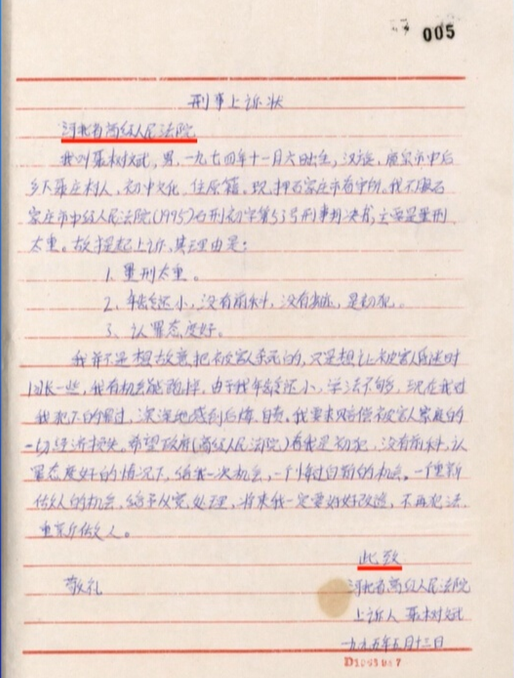 005
刑事上诉状
河北省高级人民法院
我叫聂树斌,男,一九七四年十一月六日出生,汉族,鹿泉市申后
乡下聂庄村人,初中文化,住原籍,现押石家庄市看守所。我不服石
家庄市中级人民法院(1995)石刑初字第53号刑事判决书,主要是量刑
太重。故提起上诉,其理由是:
1、量刑太重。
2、年龄还小,没有前科,没有劣迹,是初犯。
3、认罪态度好。
我并不是想故意把被害人杀死的,只是想让被害人昏迷时
间长一些,我有机会能跑掉,由于我年龄还小,学法不够,现在我对
我犯下的罪过,深深地感到后悔、自责。我要求赔偿被害人家庭的
一切经济损失。希望政府(高级人民法院)看我是初犯,没有前科,认
罪态度好的情况下,给我一次机会,一个悔过自新的机会,一个重新
做人的机会,给予从宽处理,将来我一定要好好改造,不再犯法,
重新做人。
此致
敬礼
河北省高级人民法院
上诉人 聂树斌
一九九五年五月十三日